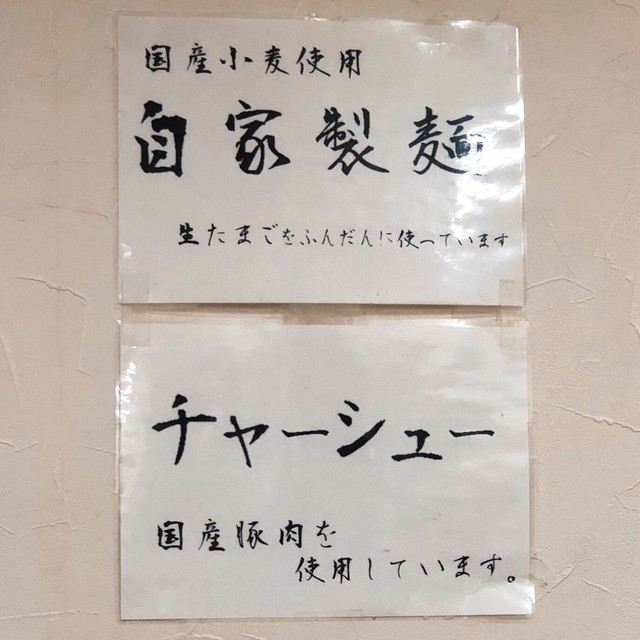 国産小麦使用
自家製麺
生たまごをふんだんに使っています
チャーシュー
国産豚肉を
使用しています。